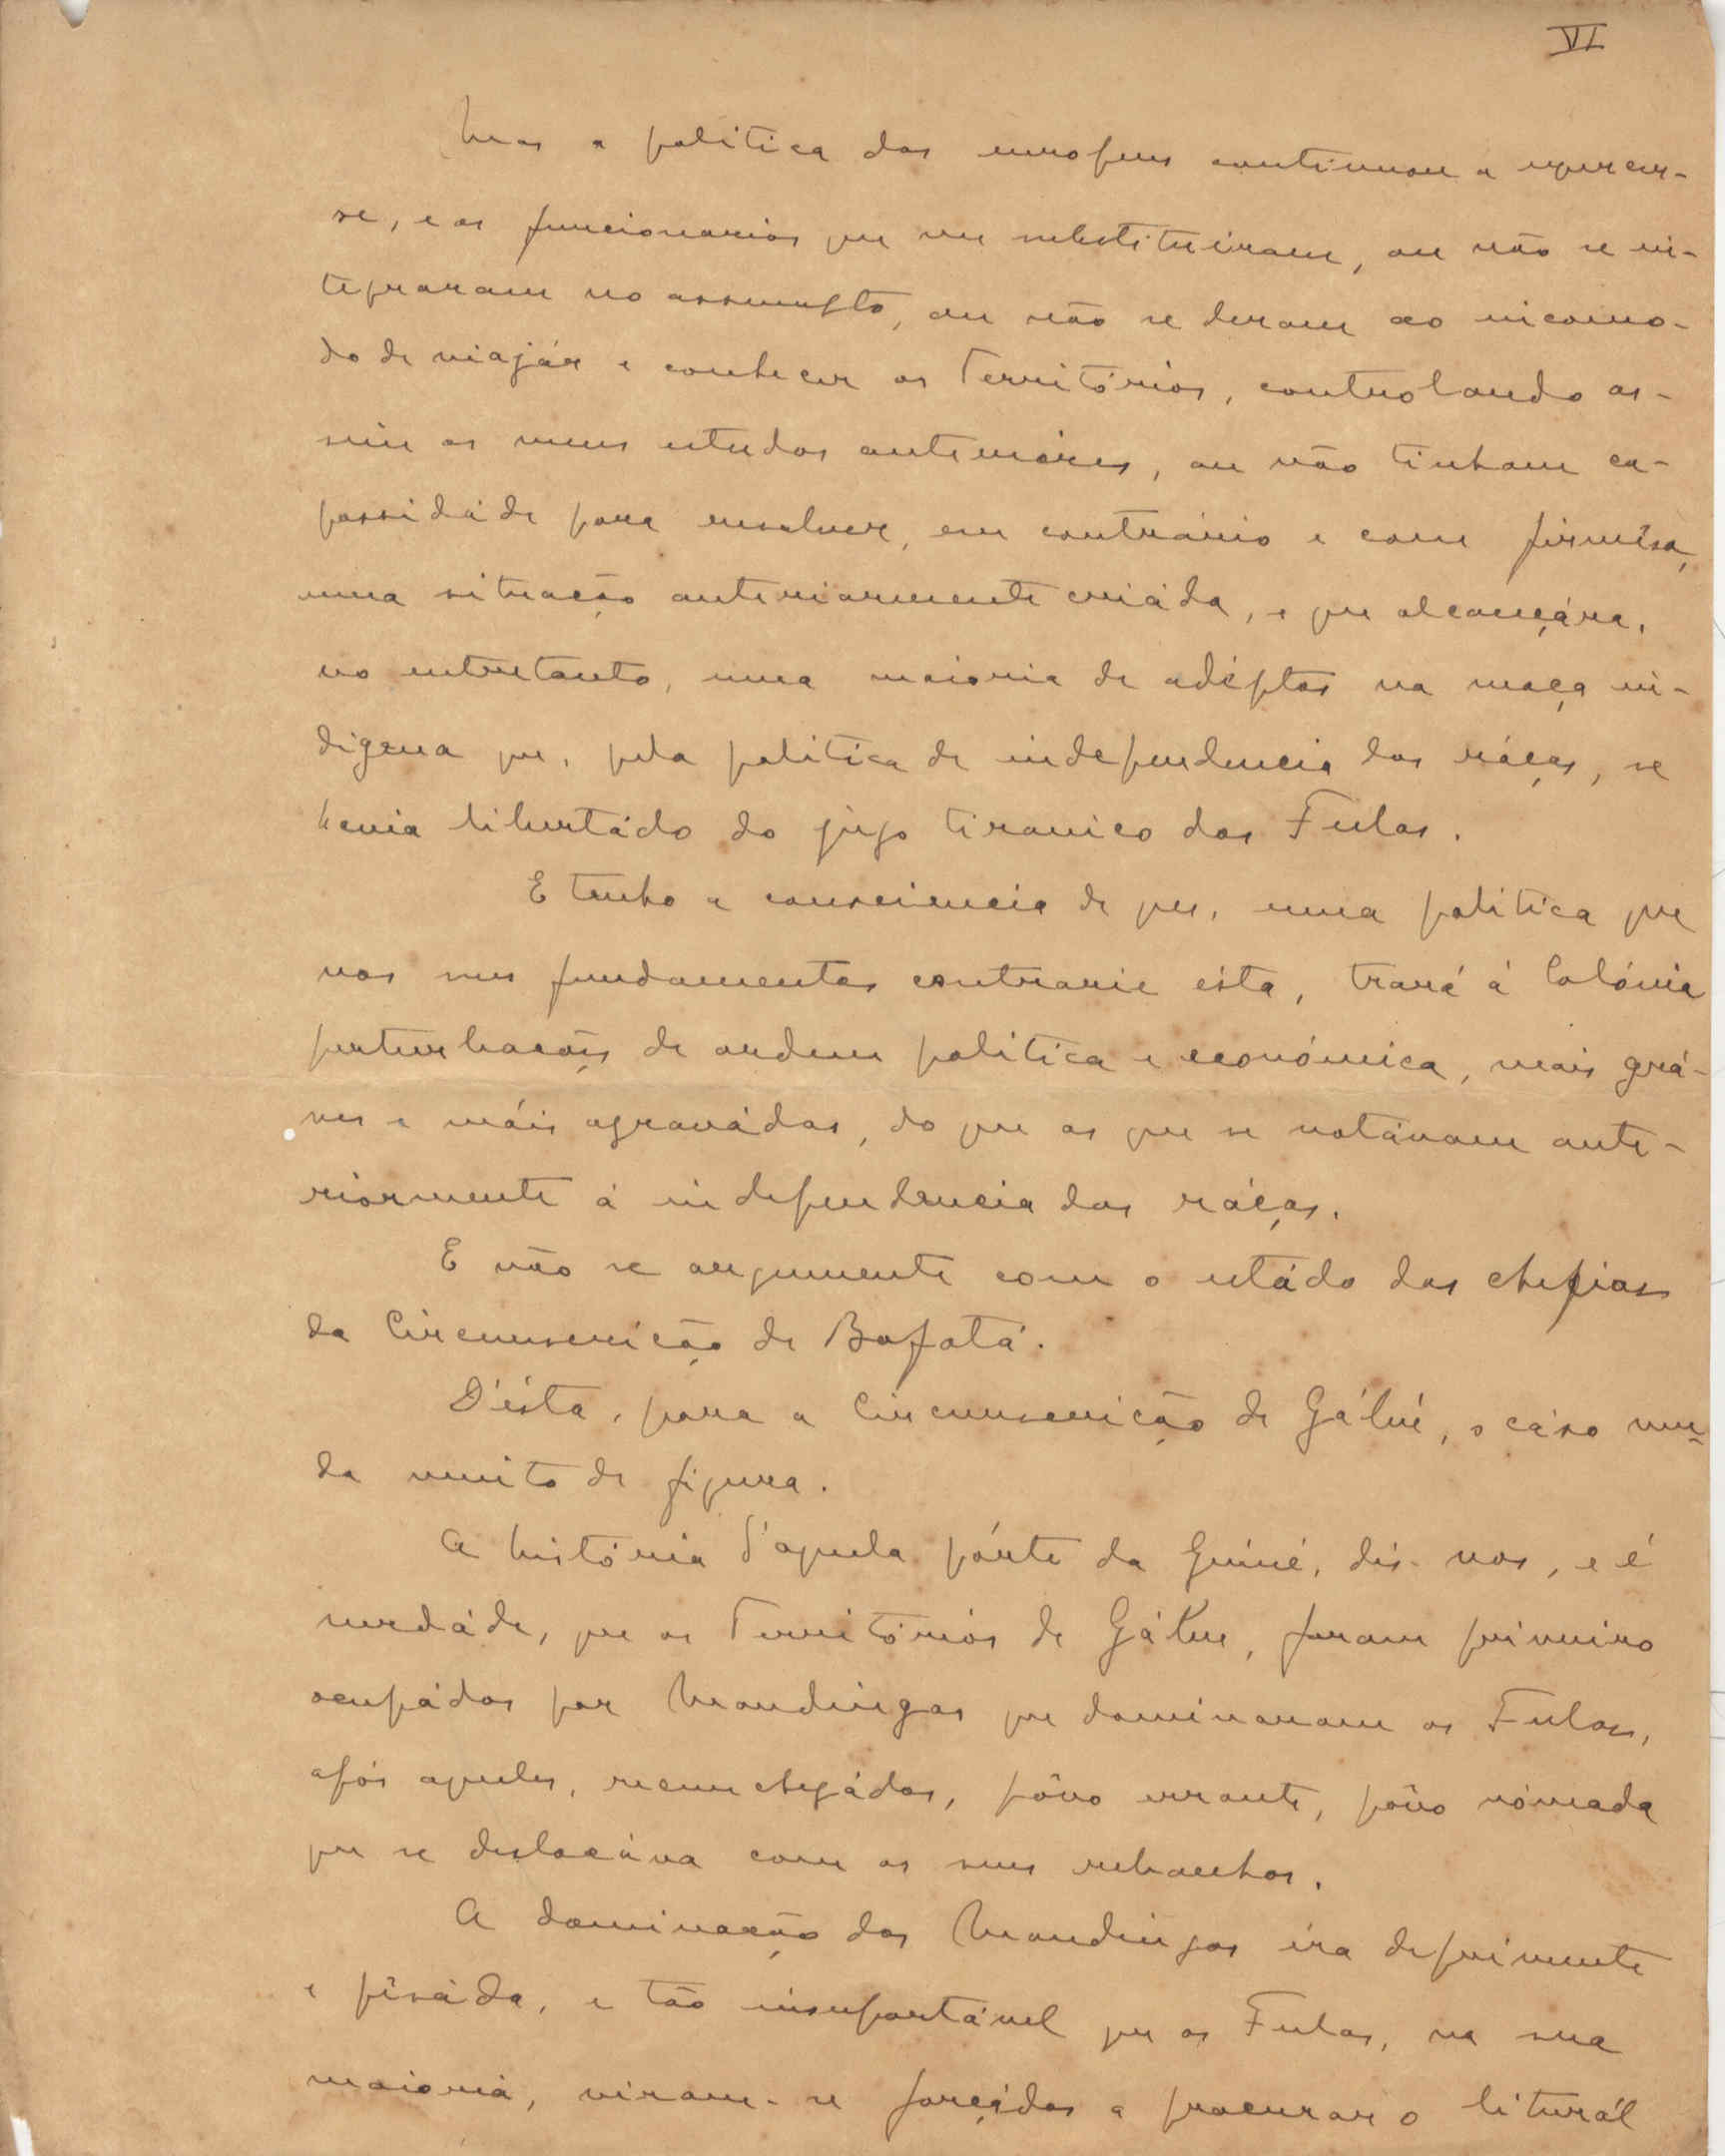 VI
Mas a politica dos europeus continuou a exercer-
se, e os funcionarios que me substituiram, ou não se in-
tegraram no assumpto, ou não se deram ao incomo-
do de viajár e conhecer os Territórios, controlando as-
sim os meus estudos anterióres, ou não tinham ca-
passidáde para resolver, em contrário e com firmêsa,
uma situação anteriormente criáda, e que alcançára,
no entretanto, uma maioria de adéptos na maça in-
digena que, pela politica de independencia das ráças, se
havia libertádo do jugo tiranico dos Fulas.
E tenho a consciencia de que, uma politica que
nos seus fundamentos contrarie ésta, trará á Colónia
perturbaçoẽs de ordem politica e económica, mais grá-
ves e máis agravádas, do que as que se notávam ante-
riormente á independencia das ráças.
E não se argumente com o estádo das chefias
da Circumscrição de Bafatá.
D'ésta, para a Circumscrição de Gábú, o cáso mu-
da muito de figura.
A história d'aquela párte da Guiné, dis-nos, e é
verdáde, que os Territórios de Gábu, foram primeiro
ocupádos por Mandingas que dominavam os Fulas,
após aqueles, recemchegádos, pôvo errante, pôvo nómada
que se deslocáva com os seus rebanhos.
A dominação dos Mandingas éra deprimente
e pêsáda, e tão insuportável que os Fulas, na sua
maioria, viram-se forçádos a procurar o literál